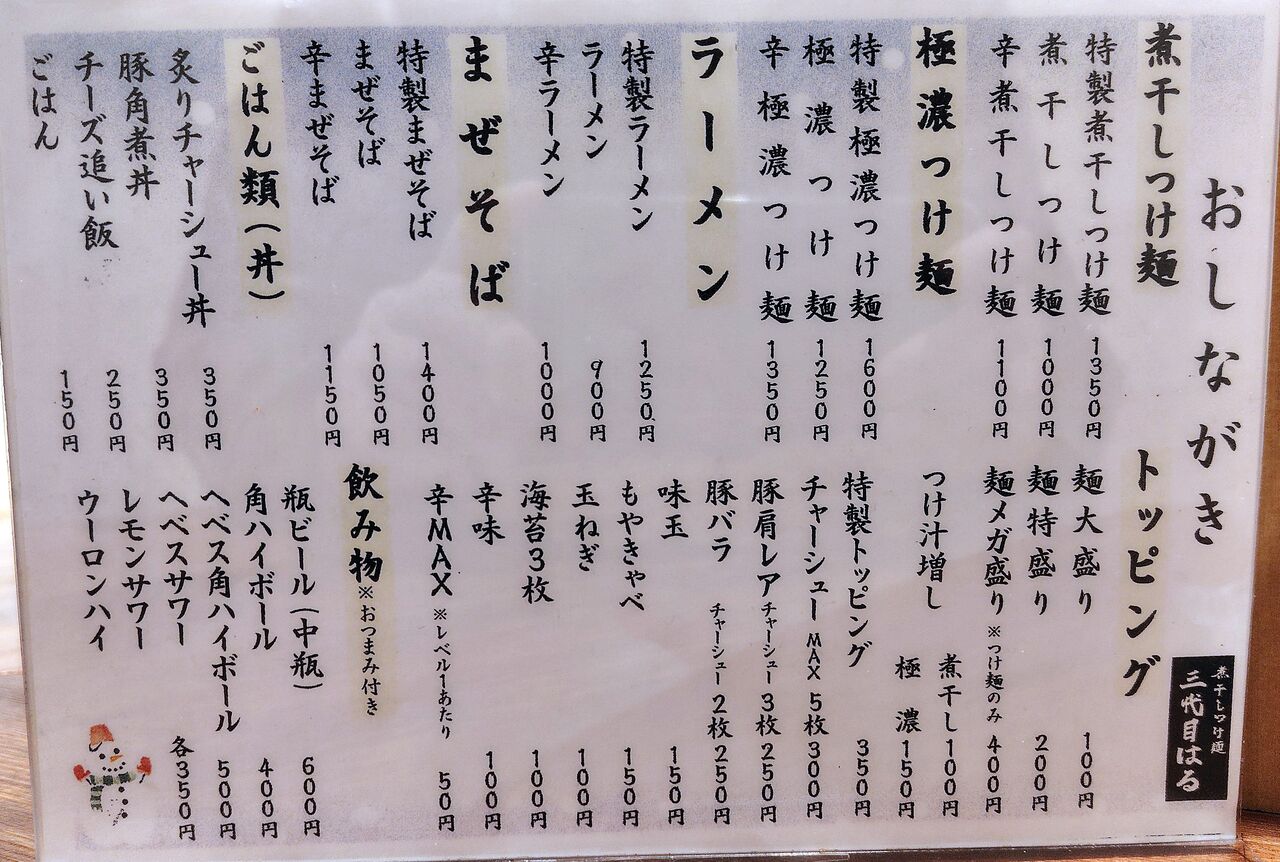 おしながき
煮干しつけ麺
三代目はる
煮干しつけ麺
特製煮干しつけ麺 1350円
煮干しつけ麺 1000円
辛煮干しつけ麺 1100円
極濃つけ麺
特製極濃つけ麺 1600円
極濃つけ麺 1250円
辛極濃つけ麺 1350円
ラーメン
特製ラーメン 1250円
ラーメン 900円
辛ラーメン 1000円
まぜそば
特製まぜそば 1400円
まぜそば 1050円
辛まぜそば 1150円
ごはん類(丼)
炙りチャーシュー丼 350円
豚角煮丼 350円
チーズ追い飯 250円
ごはん 150円
トッピング
麺大盛り 100円
麺特盛り 200円
麺メガ盛り ※つけ麺のみ 400円
つけ汁増し 煮干し 100円
極濃 150円
特製トッピング 350円
チャーシューMAX 5枚 300円
豚肩レアチャーシュー 3枚 250円
豚バラチャーシュー 2枚 250円
味玉 150円
もやきゃべ 150円
玉ねぎ 100円
海苔3枚 100円
辛味 100円
辛MAX ※レベル1あたり 50円
飲み物 ※おつまみ付き
瓶ビール(中瓶) 600円
角ハイボール 400円
ヘベス角ハイボール 500円
ヘベスサワー
レモンサワー
ウーロンハイ
各350円